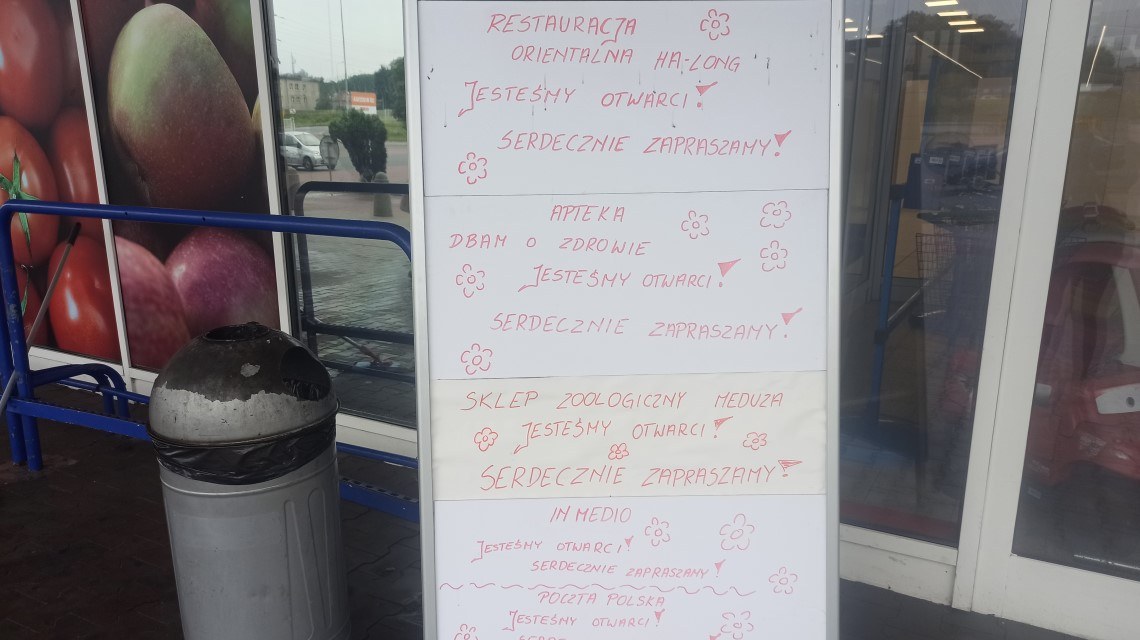 RESTAURACJA
ORIENTALNA HA-LONG
JESTEŚMY OTWARCI!
SERDECZNIE ZAPRASZAMY!
APTEKA
DBAM O ZDROWIE
JESTEŚMY OTWARCI!
SERDECZNIE ZAPRASZAMY!
SKLEP ZOOLOGICZNY MEDUZA
JESTEŚMY OTWARCI!
SERDECZNIE ZAPRASZAMY!
IN MEDIO
JESTEŚMY OTWARCI!
SERDECZNIE ZAPRASZAMY!
POCZTA POLSKA
JESTEŚMY OTWARCI!